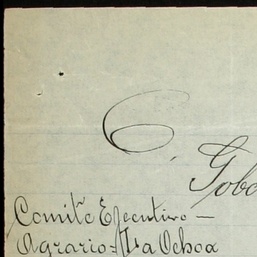 C. Gob
Comité Ejecutivo -
Agrario = La Ochoa